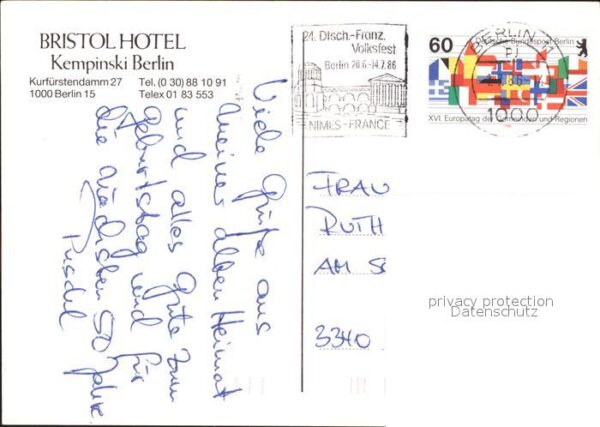 BRISTOL HOTEL
Kempinski Berlin
Kurfürstendamm 27 Tel. (0 30) 88 10 91
1000 Berlin 15 Telex 01 83 553
21. Dtsch.-Franz.
Volksfest
Berlin 20.6.-14.7.86
NIMES-FRANCE
BERLIN 11
1000
60 Deutsche Bundespost Berlin
XVI. Europatag der Gemeinden und Regionen
Viele Grüße aus
meiner alten Heimat
und alles Gute zum
Geburtstag und für
die nächsten 50 Jahre.
FRAU
RUTH
AM
3340
privacy protection
Datenschutz